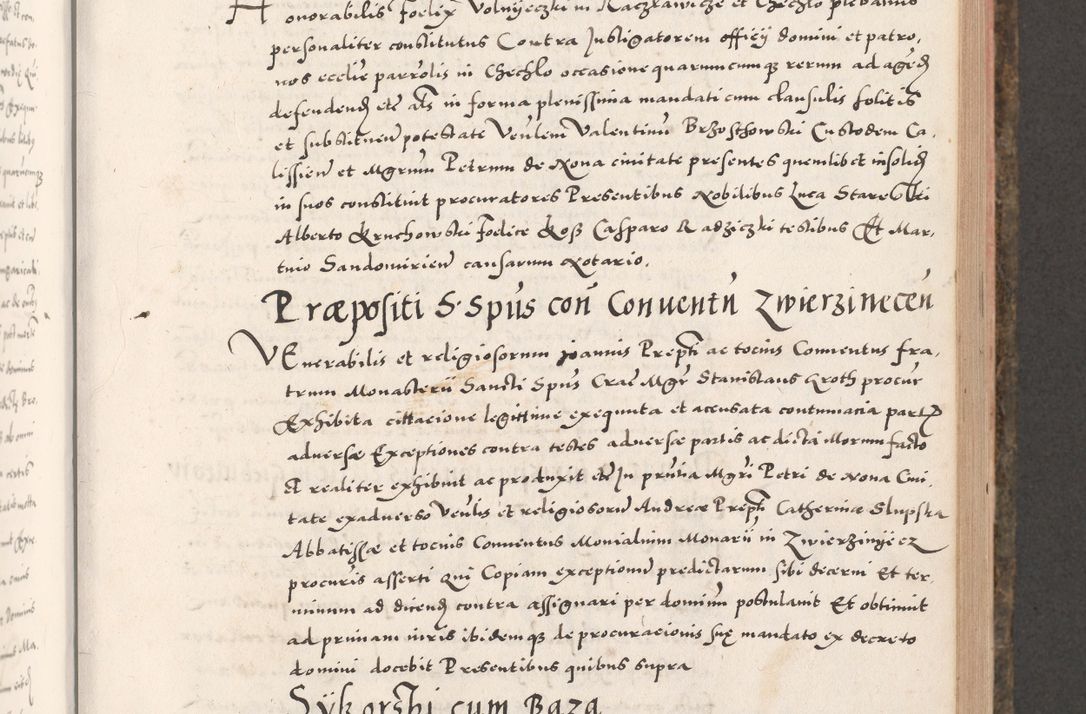 Honorabilis Foelix Volnyeczki in Raczlawicze et Chechlo plebanus
personaliter constitutus Contra Instigatorem officÿ domini et patro,
nos ecclie parrolis in Chechlo occasione quarumcumq rerum ad agend
defendend etc als in forma plenissima mandati cum clausulis solitis
et substituen potestate Venlem Valentinu Brzosthowski Custodem Ca,
lissien et Mgrum Petrum de Nona ciuitate presentes quemlibet insolid
in suos constituit procuratores Presentibus Nobilibus Luca Starelski
Alberto Kruchowski Foelice Kosz Casparo Radziczki testibus Et Mar,
tino Sandomirien causarum Notario.
Præpositi S. Spūs con Conuentu Zwierzinecen
VEnerabilis et religiosorum Joannis Prepti ac tocius Conuentus fra,
trum Monasterii Sancti Spus Crae Mgr Stanislaus Groth procur
Exhibita cittacione legittime exequuta et accusata contumacia part
aduersæ Exceptiones contra testes aduersæ partis ac dicta illorum facto
Et realiter exhibuit ac produxit etc In pruia Mgri Petri de Nona Ciui,
tate exaduerso Venlis et religiosoru Andreæ Prepti Catherinæ Slupska
Abbatissæ et tocius Conuentus Monialium Monarii in Zwierziniecz
procuris asserti qui Copiam exceptionu predictarum sibi decerni Et ter,
minum ad dicend contra assignari per dominum postulauit Et obtinuit
ad primam iuris ibidemq de procuracionis suę mandato ex decreto
domini docebit Presentibus quibus supra
Sÿkorski cum Baza